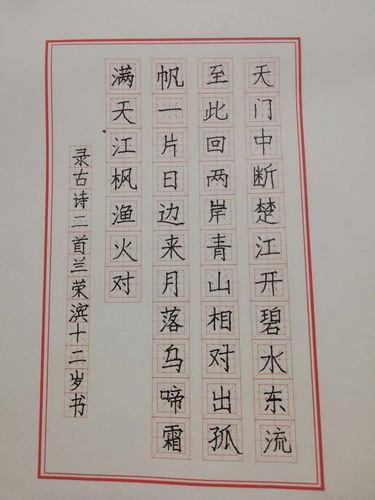 天门中断楚江开碧水东流
至此回两岸青山相对出孤
帆一片日边来月落乌啼霜
满天江枫渔火对
录古诗二首兰荣滨十二岁书